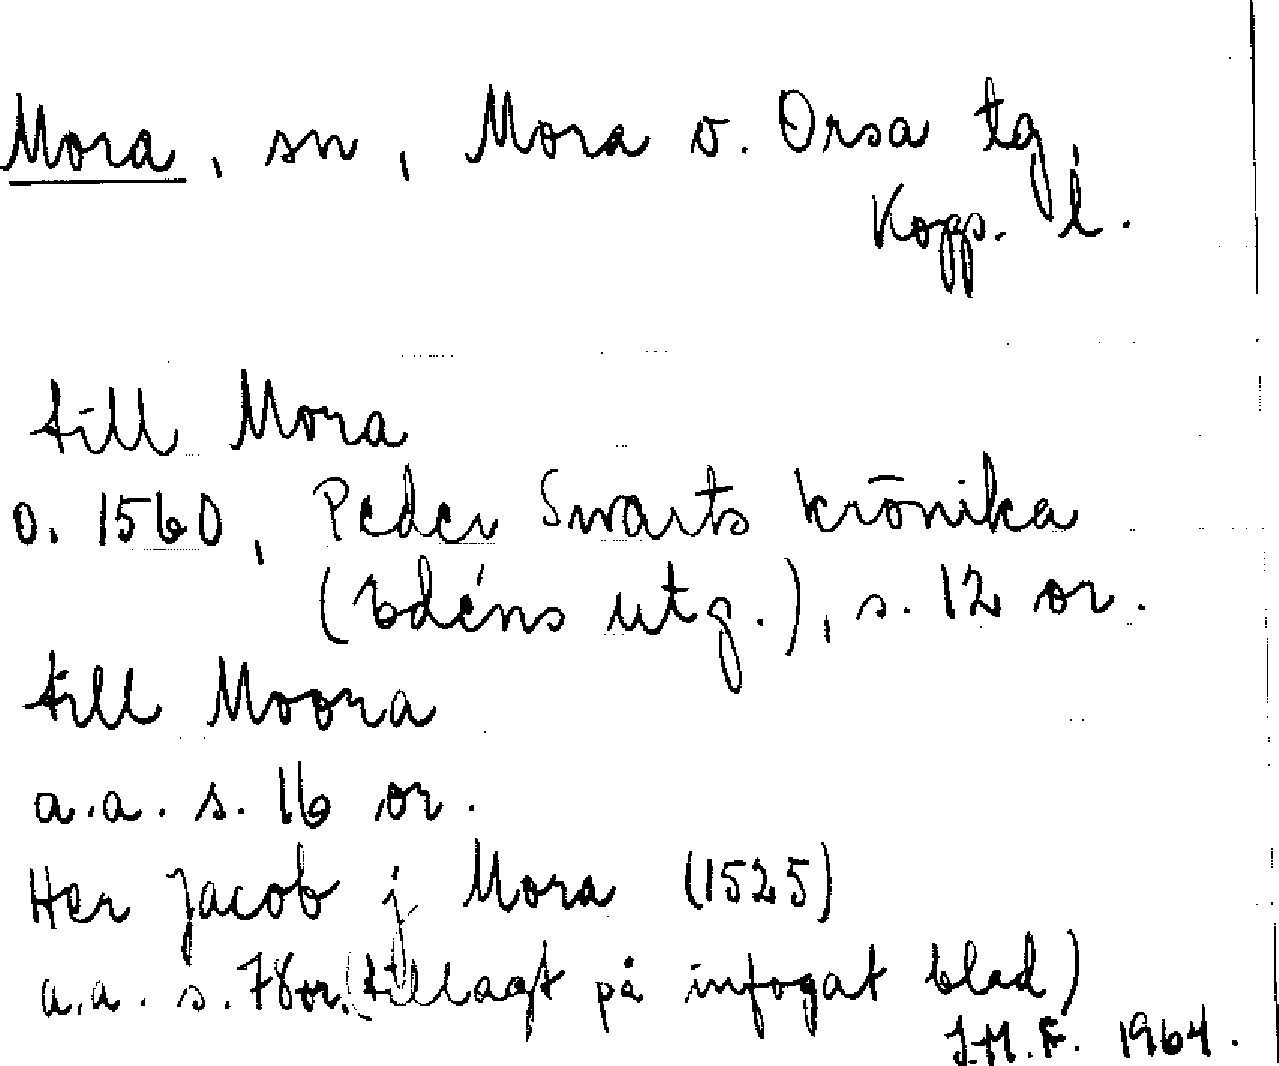 Mora, sn, Mora o. Orsa tg,
Kopp. l.
till Mora
o. 1560, Peder Swarts krönika
(Edéns utg.), s. 12 or.
till Moora
a.a. s. 16 or.
Her Jacob j Mora (1525)
a.a. s. 78 or. (tillagt på infogat blad)
1964.